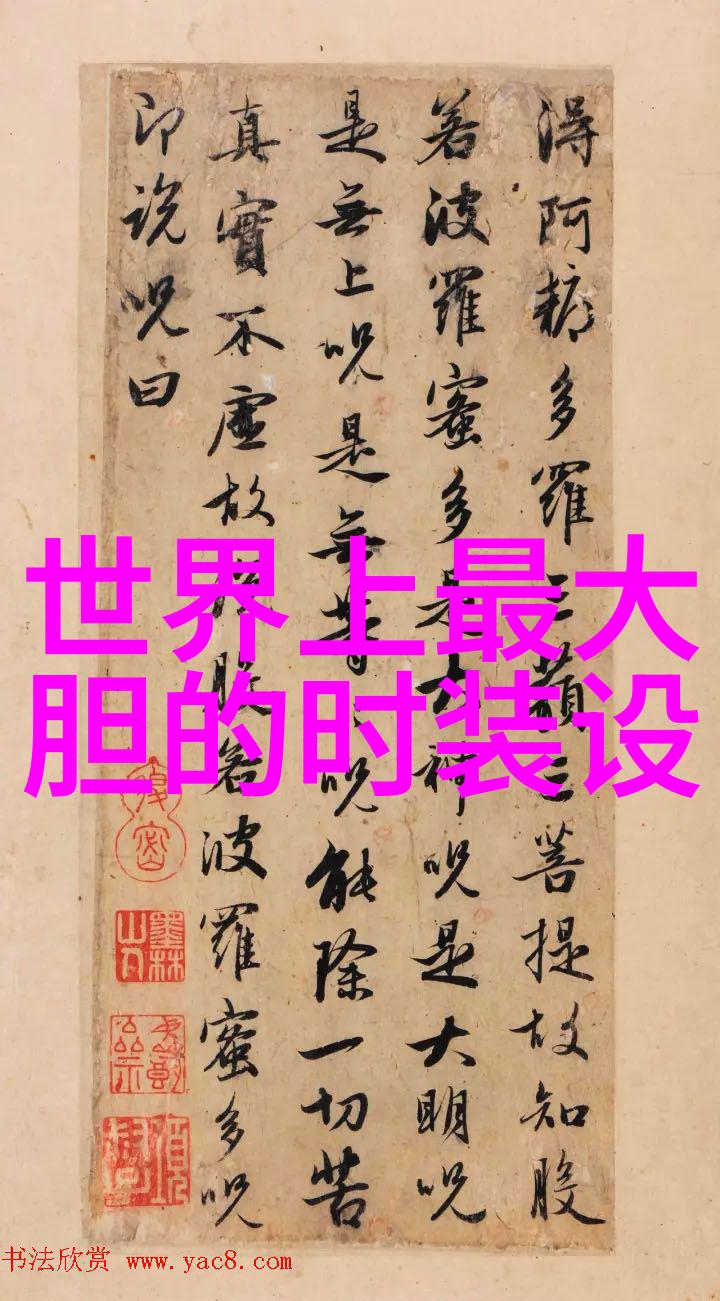 得阿耨多羅三藐三菩提故知般
若波羅蜜多是大神呪是大明呪
是無上呪是無等〻呪能除一切苦
真實不虛故說般若波羅蜜多呪
即說呪曰
世界上最大
胆的时装设
墨林山人
书法欣赏 www.yac8.com